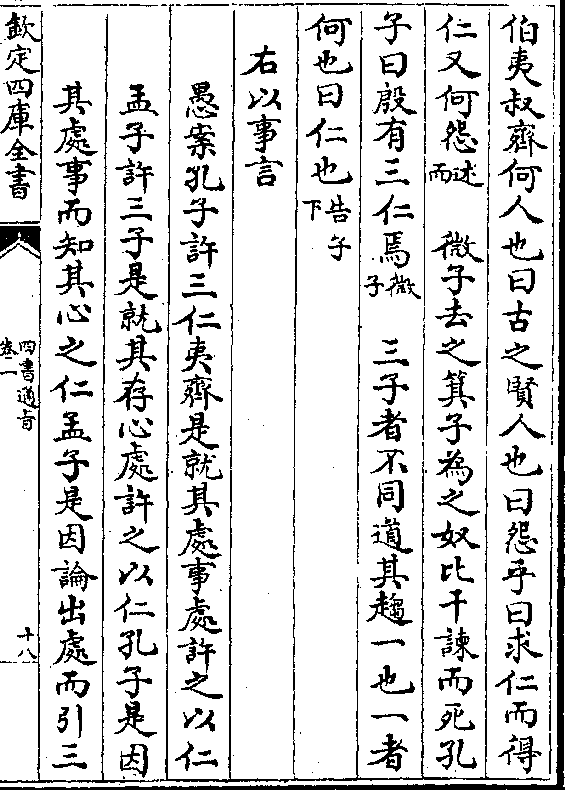 伯夷叔齊何人也曰古之賢人也曰怨乎曰求仁而得
仁又何怨述而　微子去之箕子為之奴比干諫而死孔
子曰殷有三仁焉微子　三子者不同道其趨一也一者
何也曰仁也告子下
右以事言
愚案孔子許三仁夷齊是就其處事處許之以仁
孟子許三子是就其存心處許之以仁孔子是因
其處事而知其心之仁孟子是因論出處而引三
欽定四庫全書
四書通旨
卷一
十八